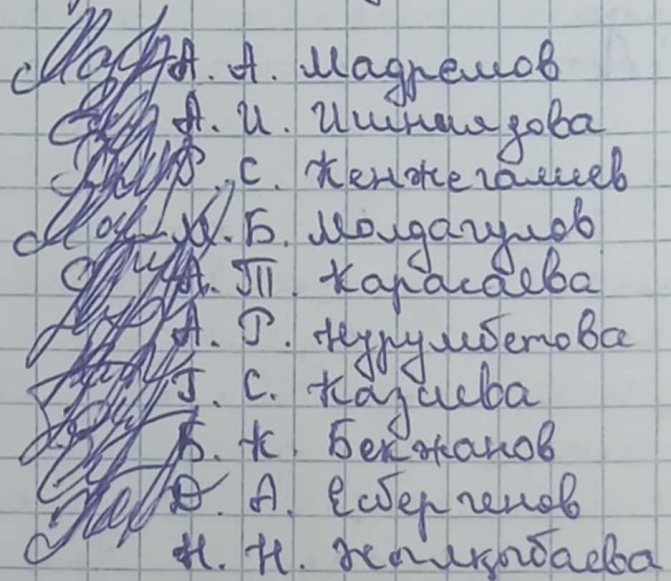 А. А. Мадремов
А. И. Ишниязова
Р. С. Женжегалиев
М. Б. Молдагулов
А. П. Карасаева
А. Г. Нурумбетова
Г. С. Казиева
Б. К. Бекжанов
Д. А. Есбергенов
Н. Н. Жолқыбаева